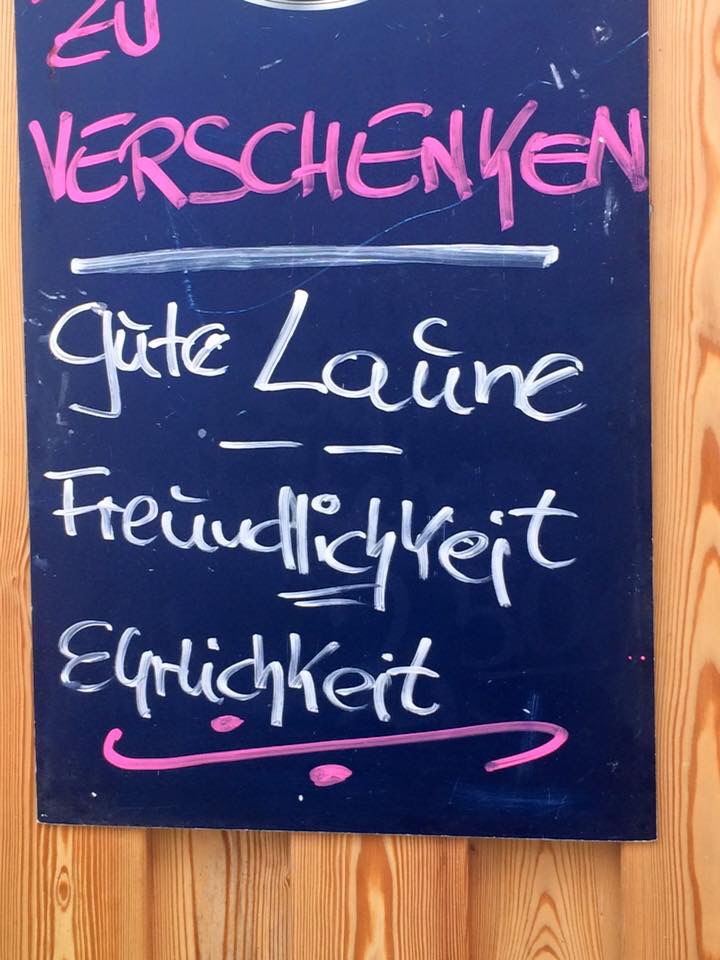 ZU
VERSCHENKEN
Gute Laune
Freundlichkeit
Ehrlichkeit